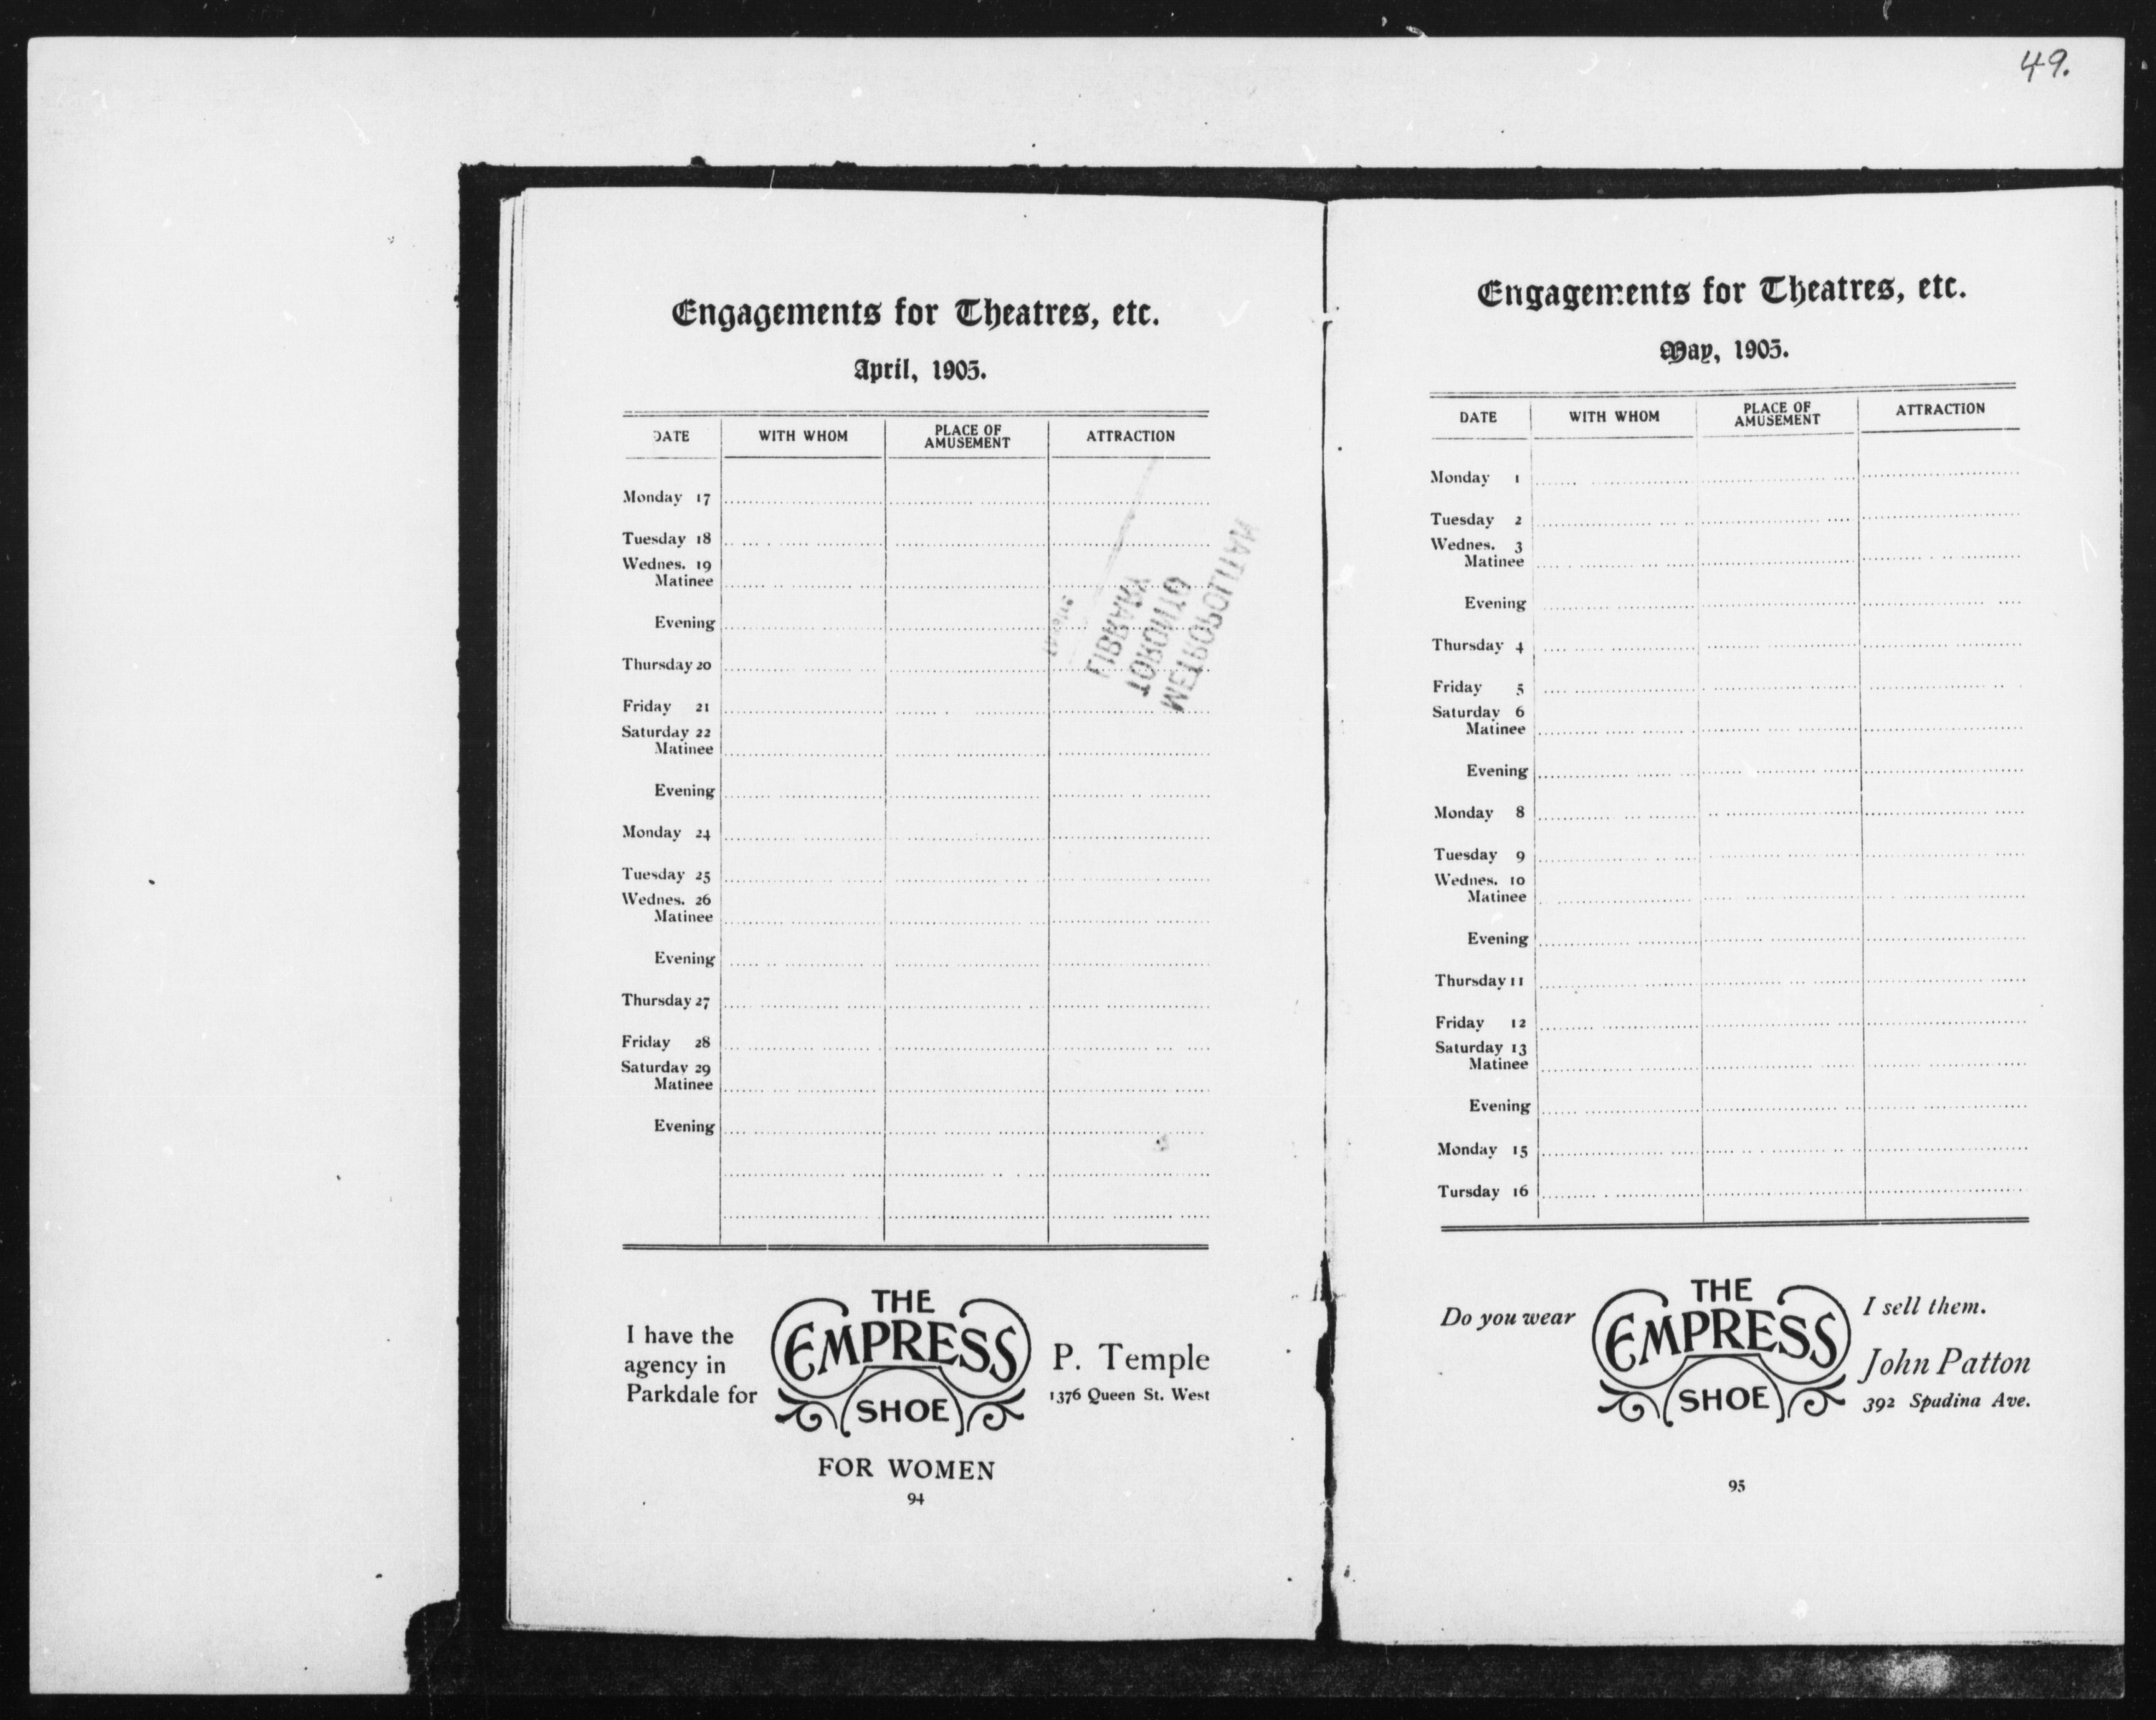 49.
Engagements for Theatres, etc.
April, 1905.
DATE WITH WHOM PLACE OF AMUSEMENT ATTRACTION
Monday 17
Tuesday 18
Wednes. 19
Matinee
Evening
Thursday 20
Friday 21
Saturday 22
Matinee
Evening
Monday 24
Tuesday 25
Wednes. 26
Matinee
Evening
Thursday 27
Friday 28
Saturday 29
Matinee
Evening
METROPOLITAN
TORONTO
LIBRARY
I have the
agency in
Parkdale for
THE
EMPRESS
SHOE
FOR WOMEN
P. Temple
1376 Queen St. West
94
Engagements for Theatres, etc.
May, 1905.
DATE WITH WHOM PLACE OF AMUSEMENT ATTRACTION
Monday 1
Tuesday 2
Wednes. 3
Matinee
Evening
Thursday 4
Friday 5
Saturday 6
Matinee
Evening
Monday 8
Tuesday 9
Wednes. 10
Matinee
Evening
Thursday 11
Friday 12
Saturday 13
Matinee
Evening
Monday 15
Tursday 16
Do you wear
THE
EMPRESS
SHOE
I sell them.
John Patton
392 Spadina Ave.
95